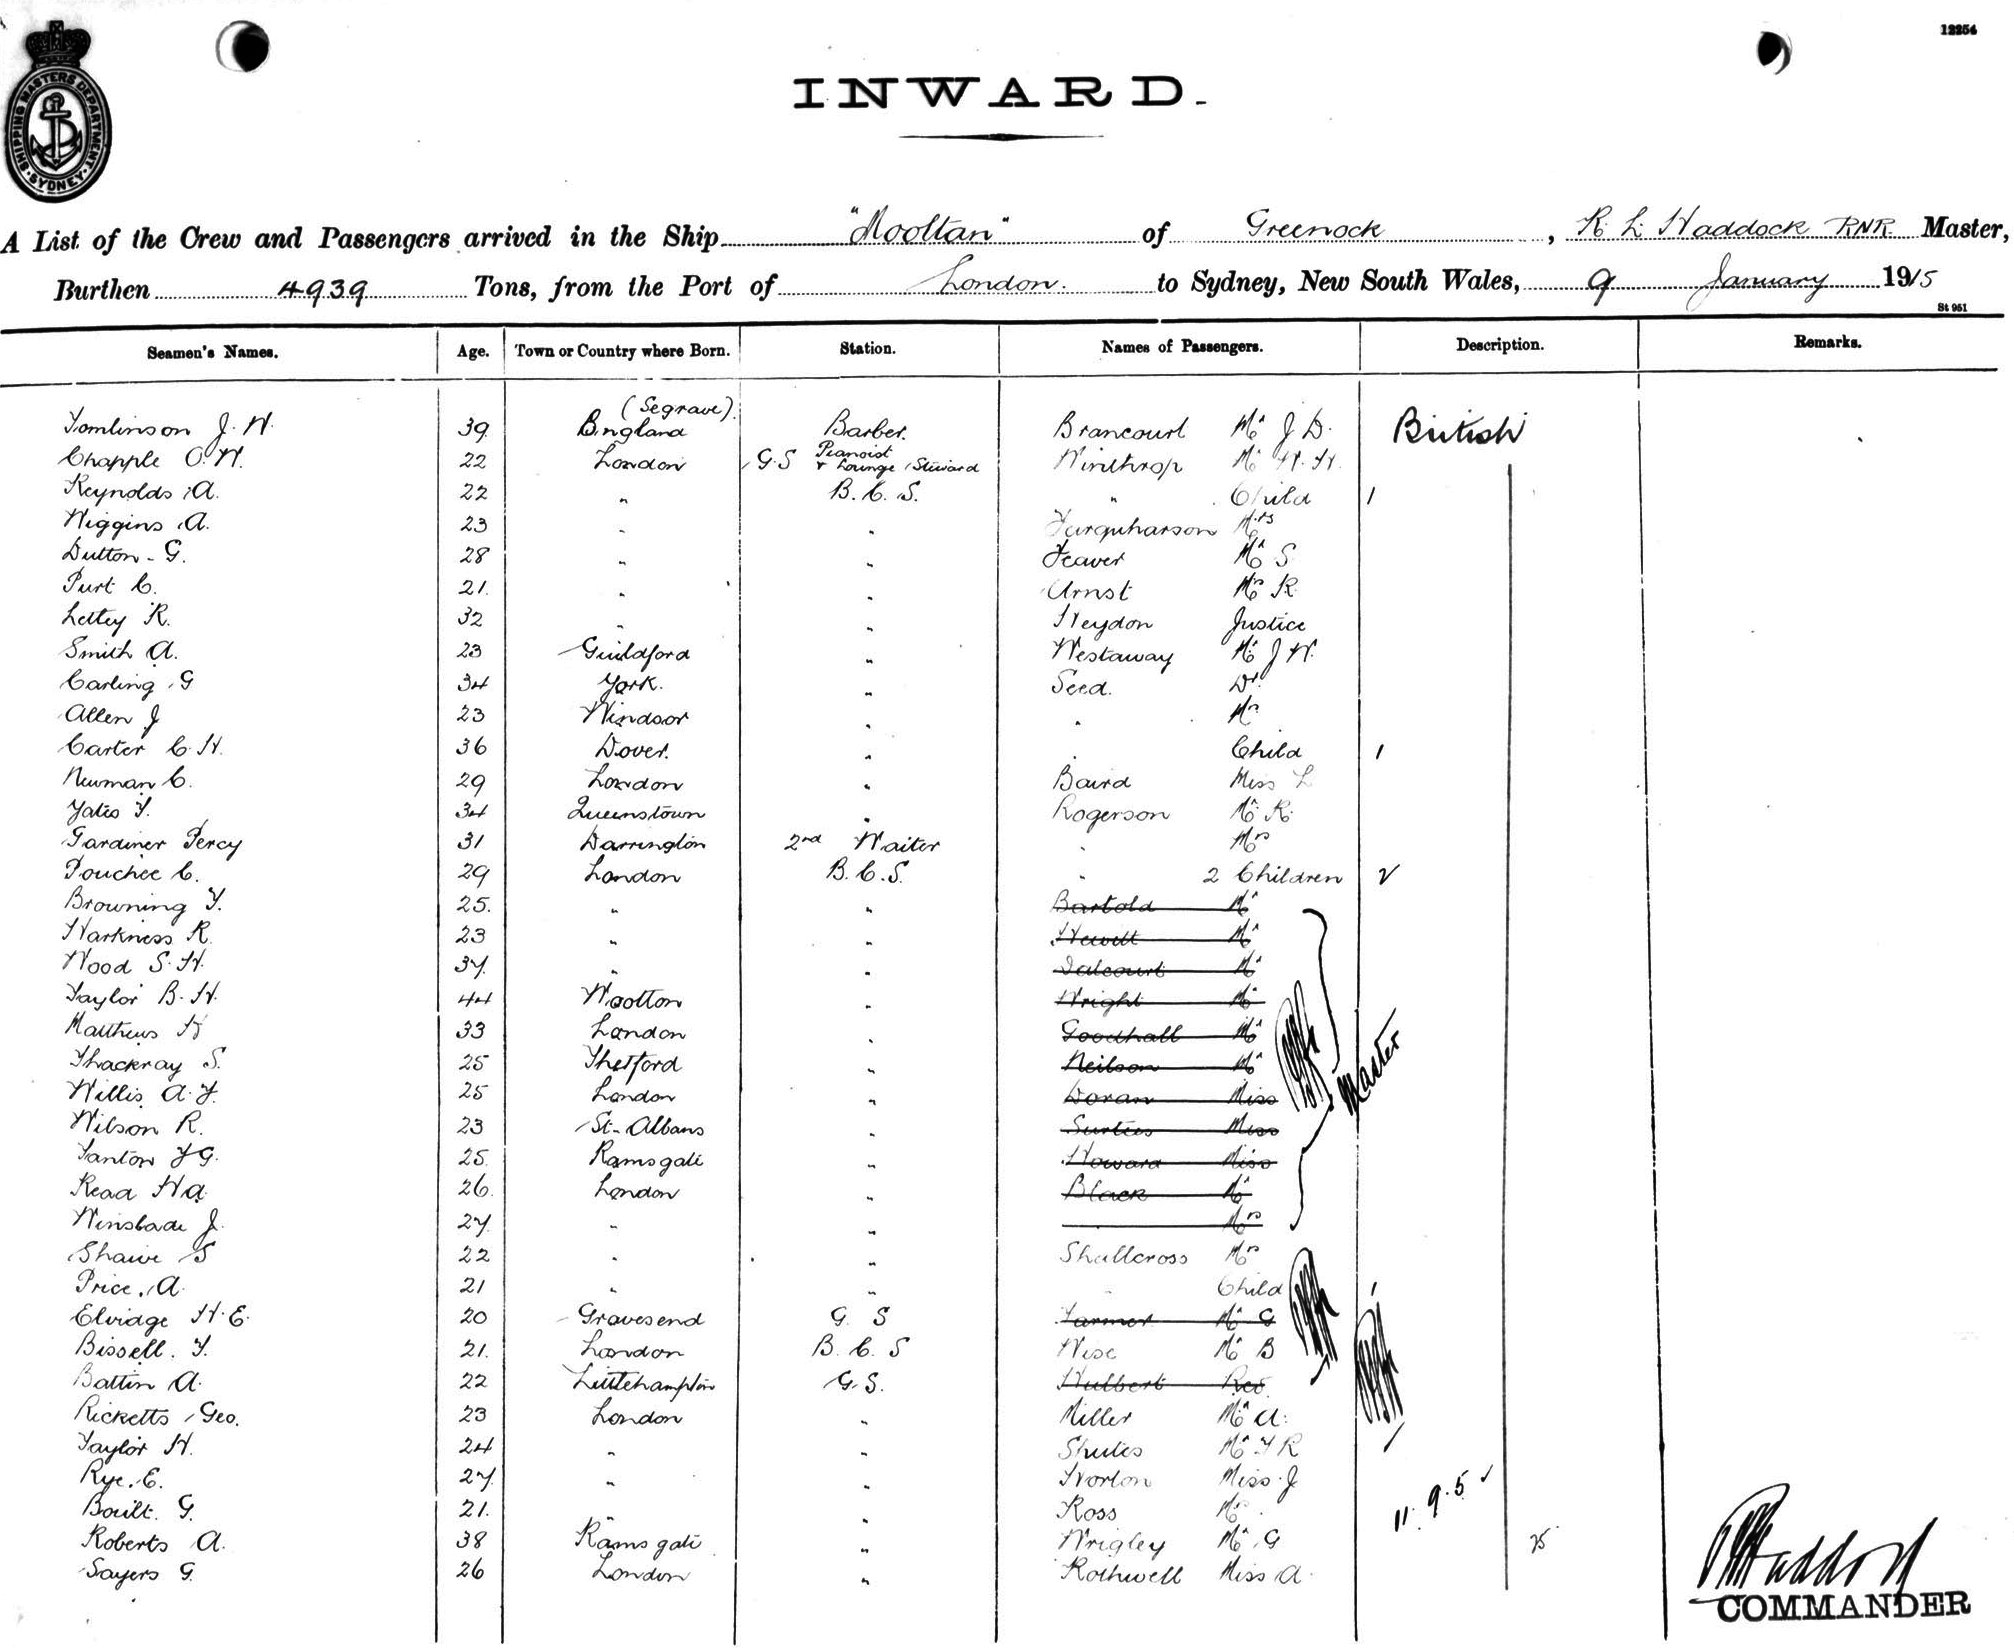 12254
SHIPPING MASTERS DEPARTMENT SYDNEY
INWARD.
A List of the Crew and Passengers arrived in the Ship "Mooltan" of Greenock, R. L. Haddock RNR Master,
Burthen 4939 Tons, from the Port of London. to Sydney, New South Wales, 9 January 1915
St 951
Seamen's Names. Age. Town or Country where Born. Station. Names of Passengers. Description. Remarks.
(Segrave)
Tomlinson J. W. 39 England Barber. Brancourt Mr J D. British
Chapple O. W. 22 London G.S Pianoist & Lounge Steward Winthrop Mr W. H.
Reynolds A. 22 " B. C. S. " Child 1
Wiggins A. 23 " " Farquharson Mrs
Dutton G. 28 " " Feaver Mr S
Purt C. 21. " " Arnst Mrs R.
Lettey R. 32 " " Heydon Justice
Smith A. 23 Guildford " Westaway Mr J W.
Carling G 34 York. " Seed. Dr.
Allen J 23 Windsor " " Mrs
Carter C. H. 36 Dover. " " Child 1
Newman C. 29 London " Baird Miss L
Yates F. 34 Queenstown " Rogerson Mr R.
Gardiner Percy 31 Darrington 2nd Waiter " Mrs
Pouchee C. 29 London B. C. S. " 2 Children 2
Browning F. 25. " " Bartold Mr
Harkness R. 23 " " Hewett Mr
Wood S. H. 37. " " Mr
Taylor B. H. 44 Wootton " Wright Mr
Matthews H 33 London " Goodhall Mr
Thackray S. 25 Thetford " Neilson Mr
Willis A. F. 25 London " Doran Miss
Master
Wilson R. 23 St. Albans " Surtees Miss
Fanton F G. 25 Ramsgate " Howard Miss
Read H a. 26. London " Black Mr
Winslade J. 27. " " Mrs
Shawe S 22 " " Shallcross Mrs
Price. A. 21 " " " Child 1
Elvidge H. E. 20 Gravesend G. S Farmer Mr G
Bissell. F. 21. London B. C. S Wise Mr B
Battin A. 22 Littlehampton G. S. Hulbert Rev.
Ricketts Geo. 23 London " Miller Mr A.
Taylor H. 24 " " Shutes Mr F R
Rye. E. 27. " " Norton Miss J
Boult. G. 21. " " Ross Mr 11. 9. 5
Roberts A. 38 Ramsgate " Wrigley Mr G 25
Sayers G. 26 London " Rothwell Miss A.
Haddock
COMMANDER